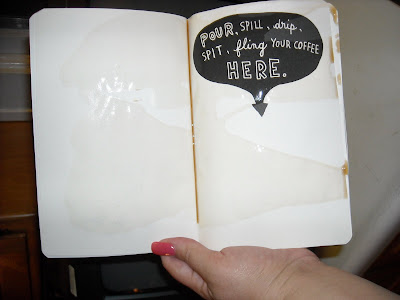 POUR, SPILL, drip,
SPIT, fling YOUR COFFEE
HERE.